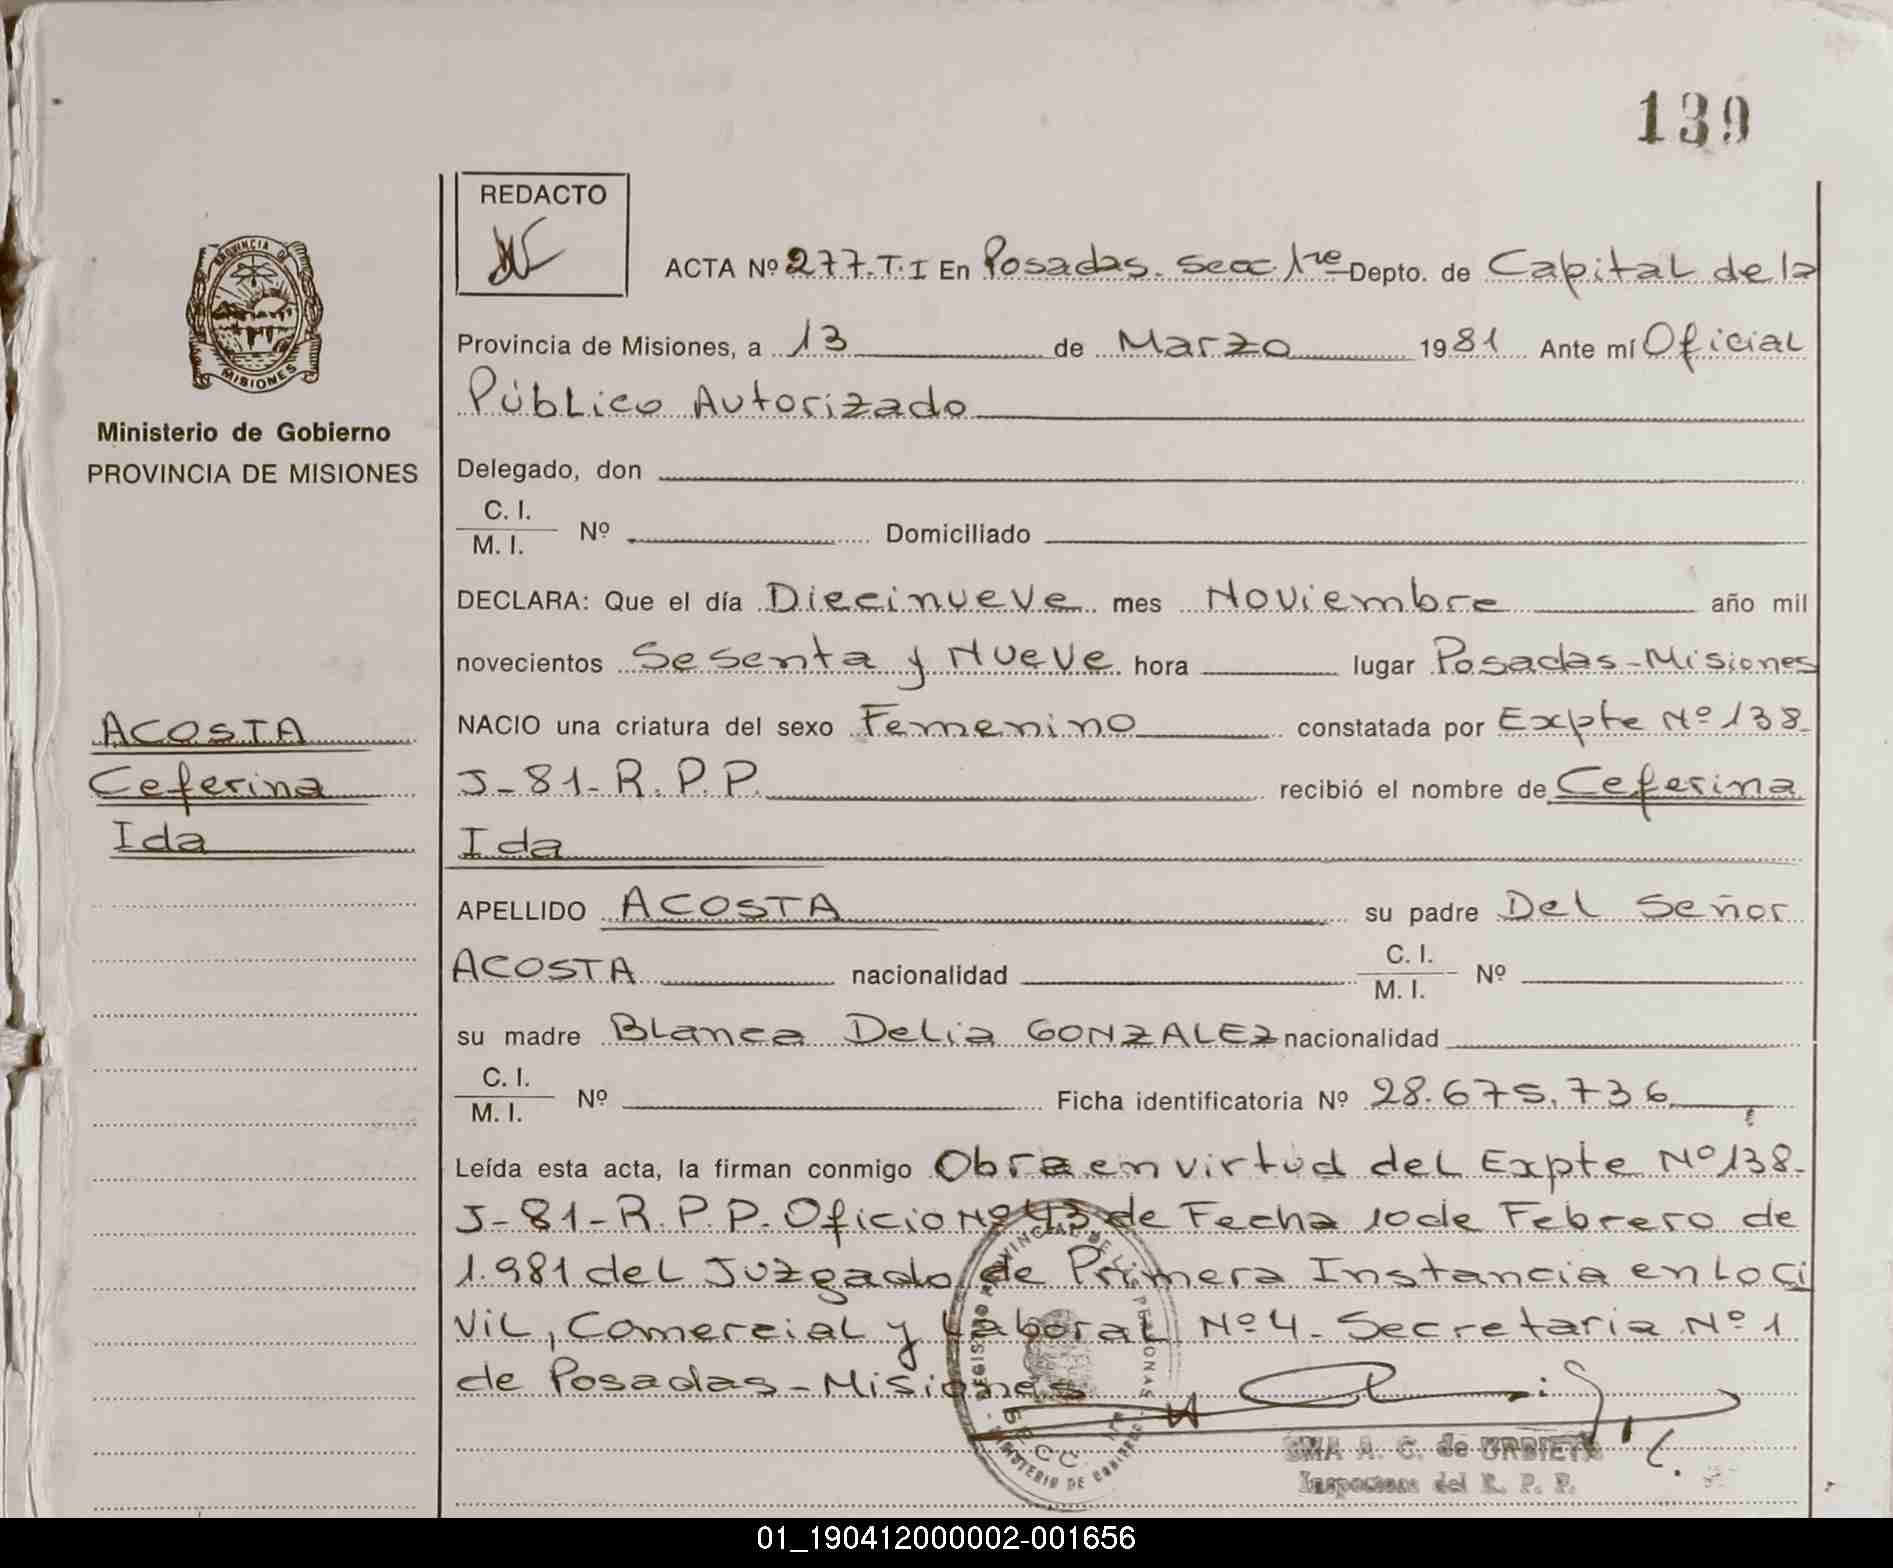 139
REDACTO
PROVINCIA DE
MISIONES
ACTA Nº 277.T.I En Posadas. Secc 1re Depto. de Capital de la
Provincia de Misiones, a 13 de Marzo 1981 Ante mí Oficial
Público Autorizado
Ministerio de Gobierno
PROVINCIA DE MISIONES
Delegado, don
C. I.
M. I. Nº Domiciliado
DECLARA: Que el día Diecinueve mes Noviembre año mil
novecientos Sesenta y Nueve hora lugar Posadas-Misiones
ACOSTA
Ceferina
Ida
NACIO una criatura del sexo Femenino constatada por Expte Nº 138-
J-81-R.P.P. recibió el nombre de Ceferina
Ida
APELLIDO ACOSTA su padre Del Señor
ACOSTA nacionalidad C. I.
M. I. Nº
su madre Blanca Delia GONZALEZ nacionalidad
C. I.
M. I. Nº Ficha identificatoria Nº 28.675.736
Leída esta acta, la firman conmigo Obra en virtud del Expte Nº 138-
J-81-R.P.P. Oficio Nº 43 de Fecha 10 de Febrero de
1.981 del Juzgado de Primera Instancia en lo Ci
vil, Comercial y Laboral Nº 4. Secretaria Nº 1
de Posadas-Misiones
REGISTRO PROVINCIAL DE LAS PERSONAS
MINISTERIO DE GOBIERNO
A. C. de URBIETA
del R. P. P.
01_190412000002-001656